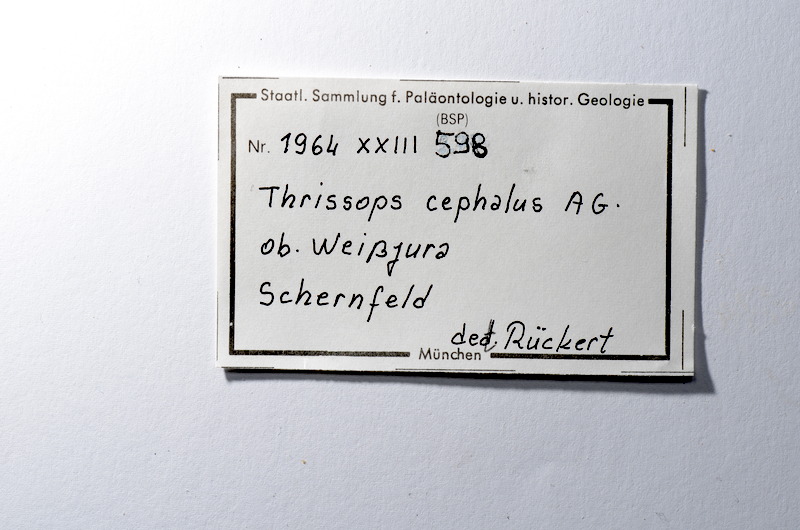 Staatl. Sammlung f. Paläontologie u. histor. Geologie
(BSP)
Nr. 1964 XXIII 598
Thrissops cephalus AG.
ob. Weißjura
Schernfeld
det. Rückert
München